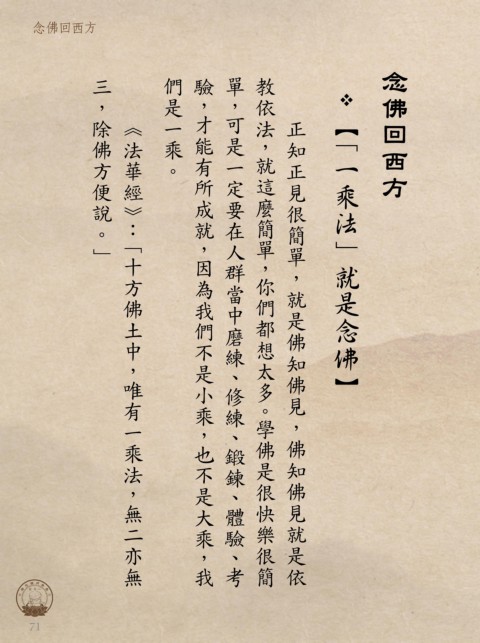 念佛回西方
念佛回西方
❖【「一乘法」就是念佛】
正知正見很簡單，就是佛知佛見，佛知佛見就是依
教依法，就這麼簡單，你們都想太多。學佛是很快樂很簡
單，可是一定要在人群當中磨練、修練、鍛鍊、體驗、考
驗，才能有所成就，因為我們不是小乘，也不是大乘，我
們是一乘。
《法華經》：「十方佛土中，唯有一乘法，無二亦無
三，除佛方便說。」
71